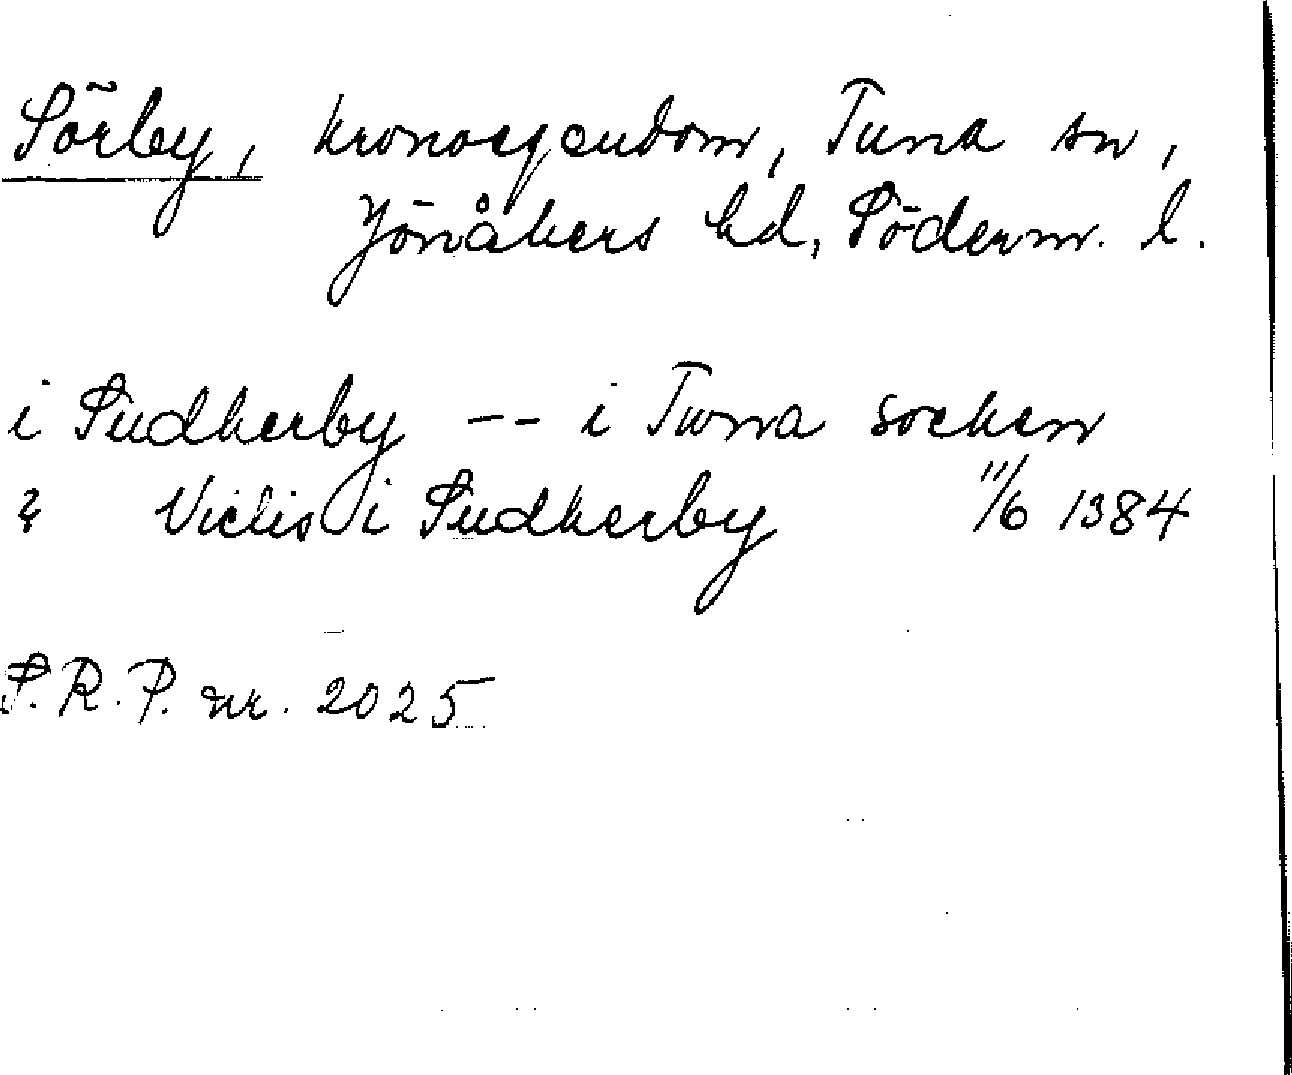 Sörby, kronoegendom, Tuna sn,
Jönåkers hd, Söderm. l.
i Sudherby -- i Twna socken
? Viclis i Sudherby 11/6 1384
S.R.P. nr. 2025